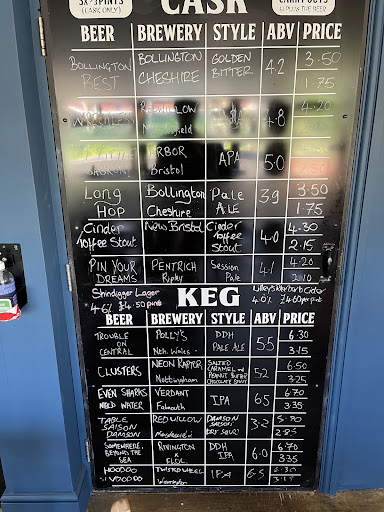 3X⅓PINTS
(CASK ONLY)
CASK
CARRY OUTS
BEER BREWERY STYLE ABV PRICE
BOLLINGTON BEST BOLLINGTON CHESHIRE GOLDEN BITTER 4.2 3.50 1.75
REDWILLOW 4.8 4.20
ARBOR Bristol APA 5.0
Long Hop Bollington Cheshire Pale ALE 3.9 3.50 1.75
Cinder Toffee Stout New Bristol Cinder Toffee Stout 4.0 4.30 2.15
PIN YOUR DREAMS PENTRICH Ripley Session Pale 4.1 4.20 2.10
Shindigger Lager
4.6% £4.50 pint
KEG
4.0% £4.60 per pint
BEER BREWERY STYLE ABV PRICE
TROUBLE ON CENTRAL POLLY'S Nth. Wales DDH PALE ALE 5.5 6.30 3.15
CLUSTERS NEON RAPTOR Nottingham SALTED CARAMEL and PEANUT BUTTER CHOCOLATE STOUT 5.2 6.50 3.25
EVEN SHARKS NEED WATER VERDANT Falmouth IPA 6.5 6.70 3.35
TABLE SAISON DAMSON REDWILLOW DAMSON SAISON 3.2 2.85
SOMEWHERE BEYOND THE SEA RIVINGTON X DDH IPA 6.0 6.70 3.35
HOODOO VOODOO TWISTED WHEEL Warrington IPA 6.5 6.30 3.15